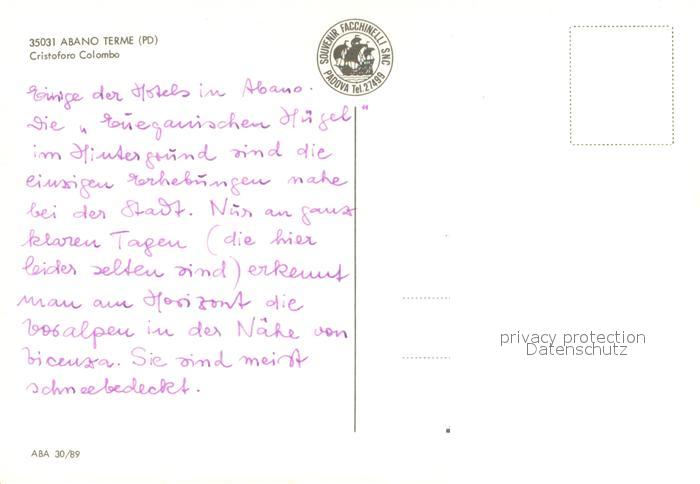 35031 ABANO TERME (PD)
Cristoforo Colombo
SOUVENIR FACCHINELLI SNC
PADOVA Tel. 27499
Einige der Hotels in Abano.
Die „Eueganischen Hügel"
im Hintergrund sind die
einzigen Erhebungen nahe
bei der Stadt. Nur an ganz
klaren Tagen (die hier
leider selten sind) erkennt
man am Horizont die
Voralpen in der Nähe von
Vicenza. Sie sind meist
schneebedeckt.
ABA 30/89
privacy protection
Datenschutz